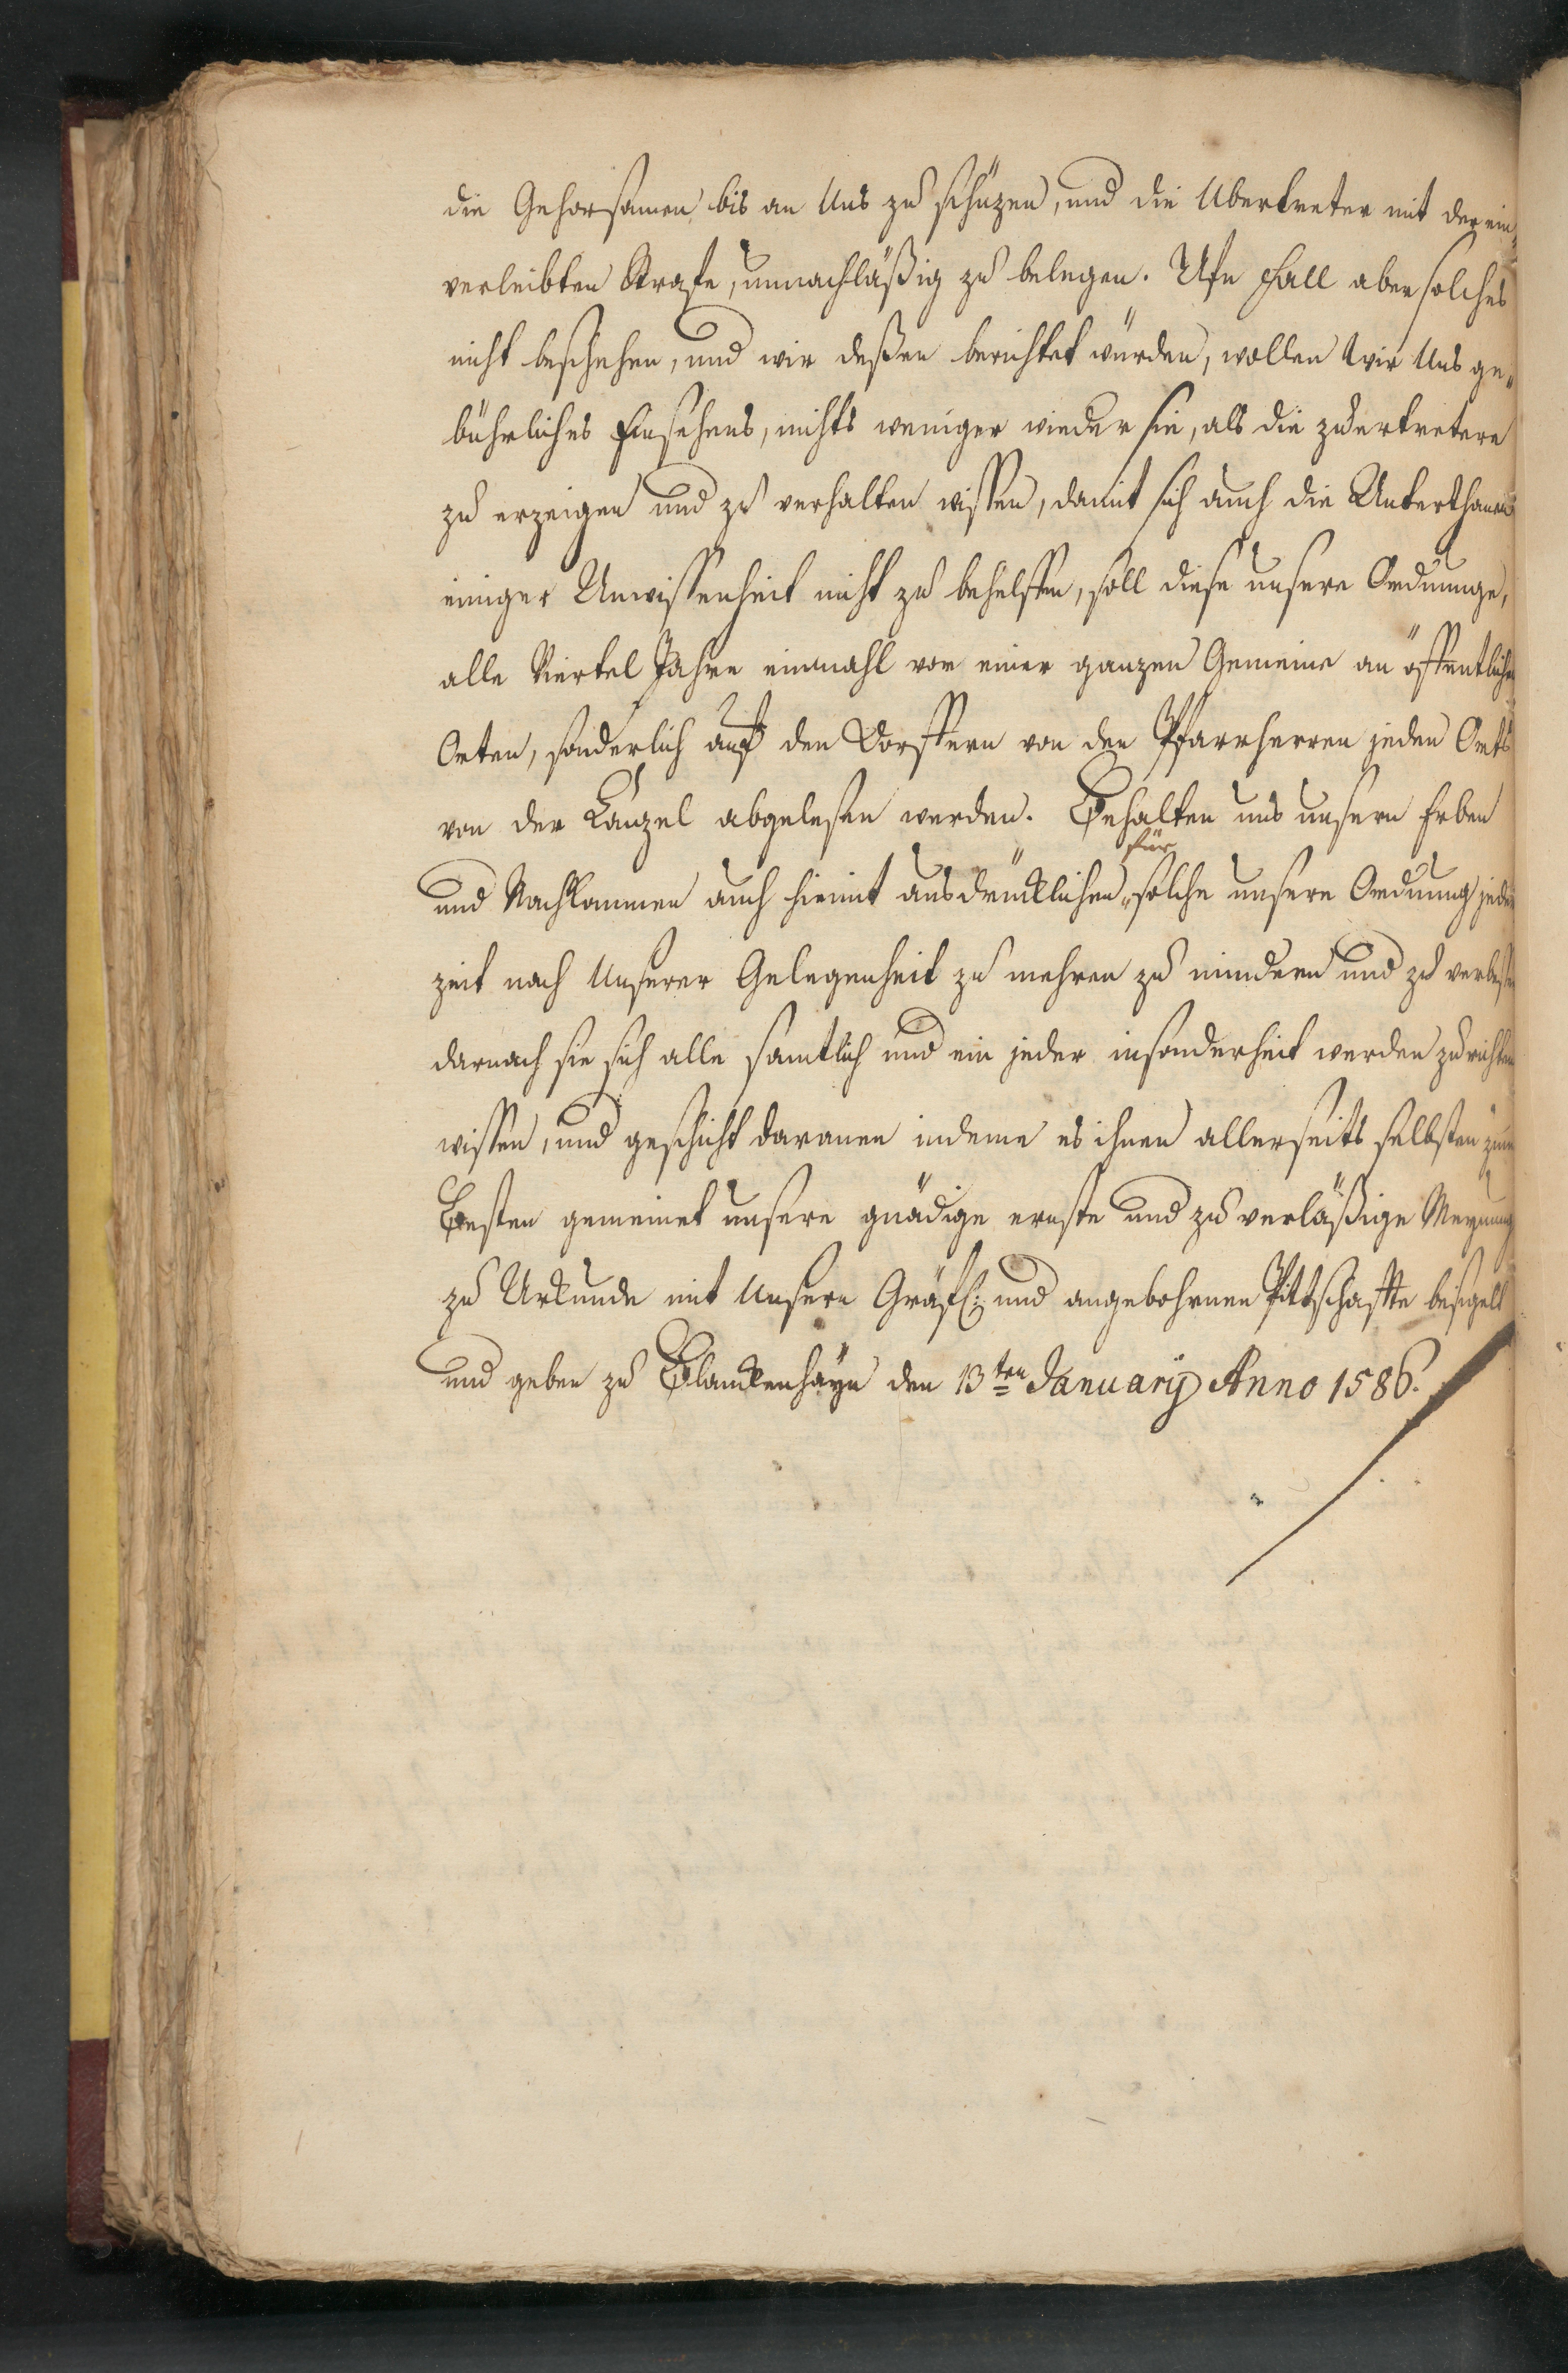 die Gehorsamen bis an Uns zu schüzen, und die Ubertreter mit der ein„
verleibten Strafe, unnachläßig zu belegen. Ufn Fall aber solches
nicht beschehen, und wir deßen berichtet würden, wollen Wir Uns ge„
bührliches Einsehens, nichts weniger wieder sie, als die
zu erzeigen und zu verhalten wißen, damit sich auch die Unterthanen
einiger Unwißenheit nicht zu behelffen, soll diese unsere Ordnunge,
alle Viertel Jahre einmahl vor einer ganzen Gemeine an öffentlichen
Orten, sonderlich auf den Dorffern von den Pfarrherren jeden Orts
von der Canzel abgelesen werden. Behalten uns unsern Erben
für
und Nachkommen auch hiemit ausdrücklichen solche unsere Ordnung jeder
zeit nach Unserer Gelegenheit zu mehren zu mindern und zu verbeßern
darnach sie sich alle samtlich und ein jeder insonderheit werden zu richten
wißen, und geschicht daranen indeme es ihnen allerseits selbsten zum
Besten gemeinet unsere gnädige ernste und zu verläßige Meynung
zu Urkunde mit Unsern Gräfl: und angebohrnen Pittschafte besigelt
und geben zu Blanckenhayn den 13ten Januarÿ Anno 1586.